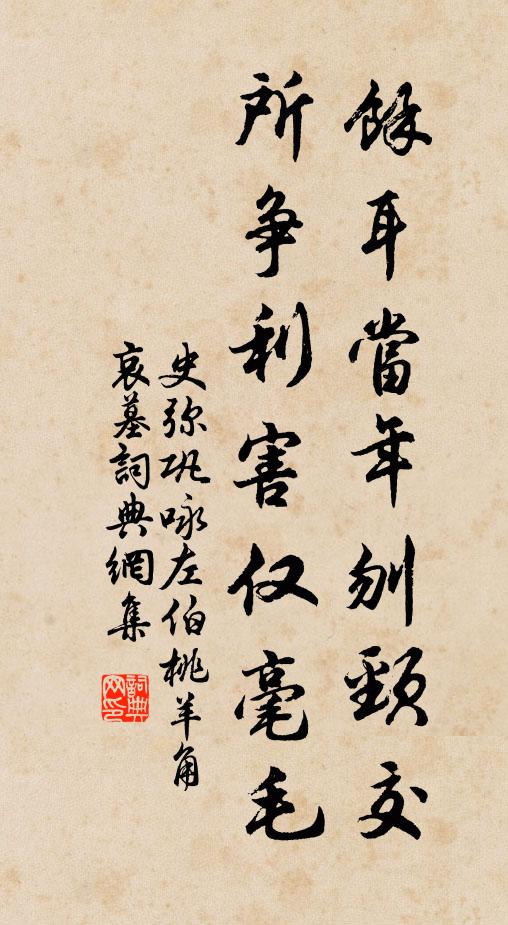 餘耳當年刎頸交
所争利害仅毫毛
史弥巩咏左伯桃羊角
哀墓詞典網集
詞典网印